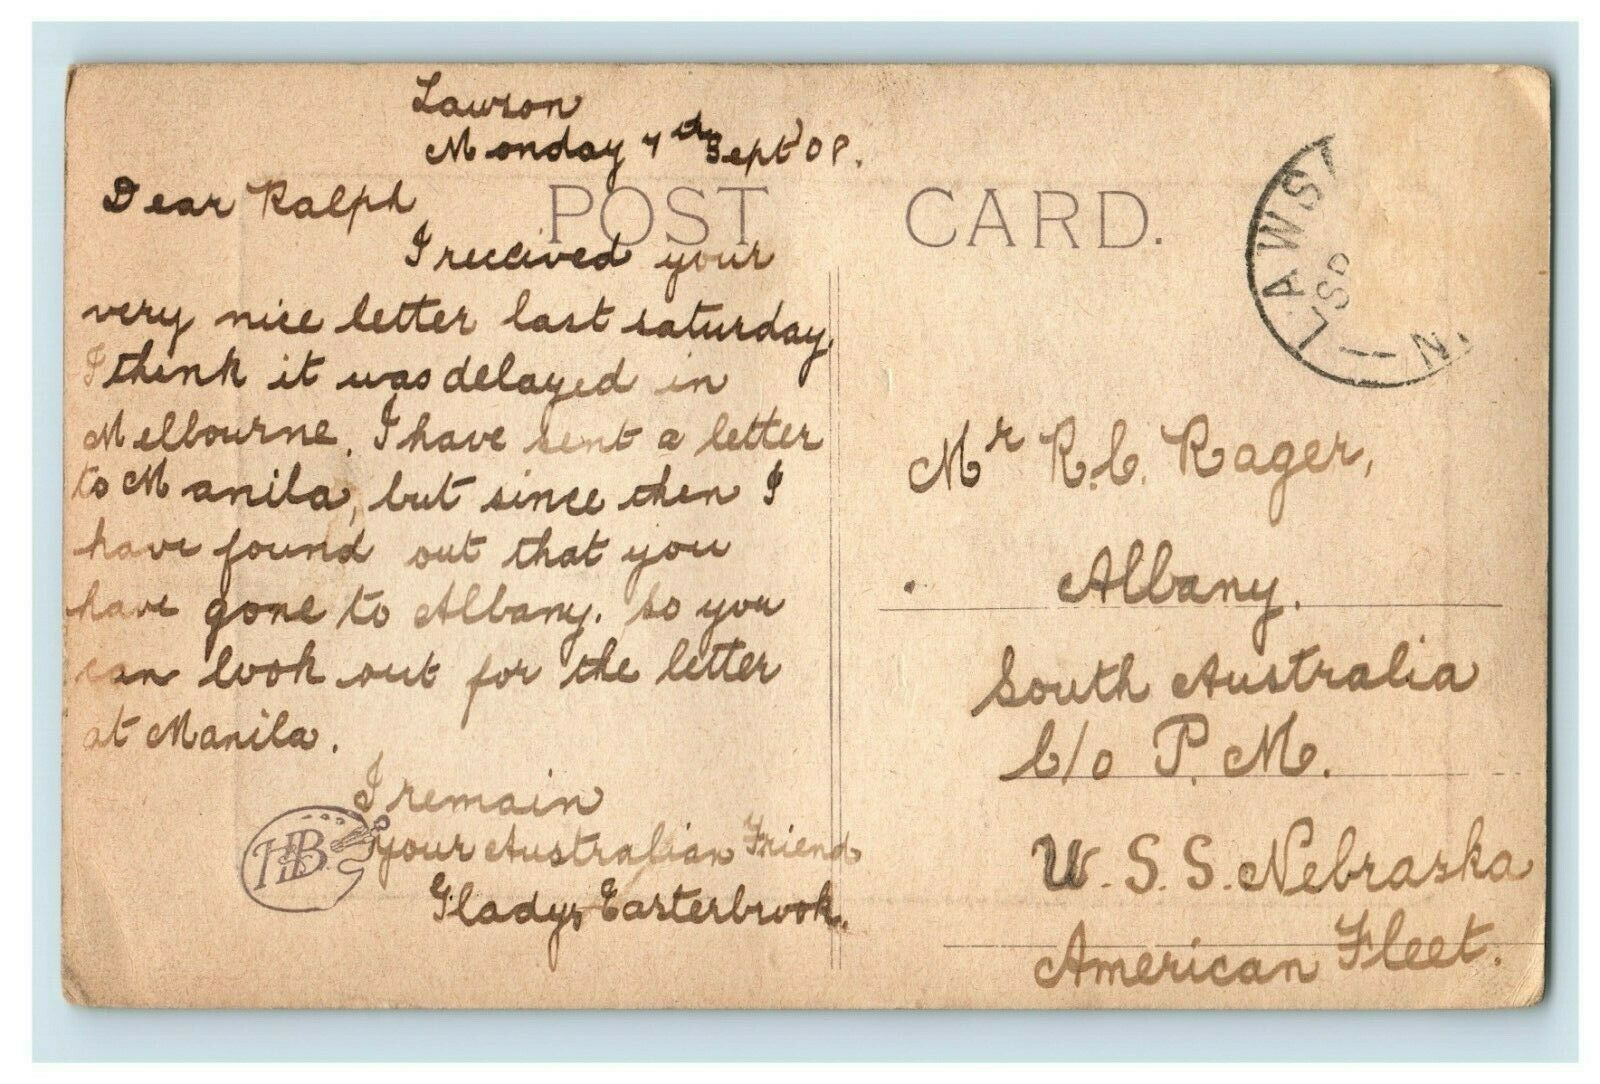 Lawson
Monday 7th Sept '08.
Dear Ralph
I received your
very nice letter last saturday,
I think it was delayed in
Melbourne. I have sent a letter
to Manila, but since then I
have found out that you
have gone to Albany. So you
can look out for the letter
at Manila.
I remain
Your Australian Friend
Gladys Easterbrook.
HB
POST CARD.
LAWS
SP
N
Mr R. C. Rager,
Albany.
South Australia
C/o P. M.
U. S. S. Nebraska
American Fleet.